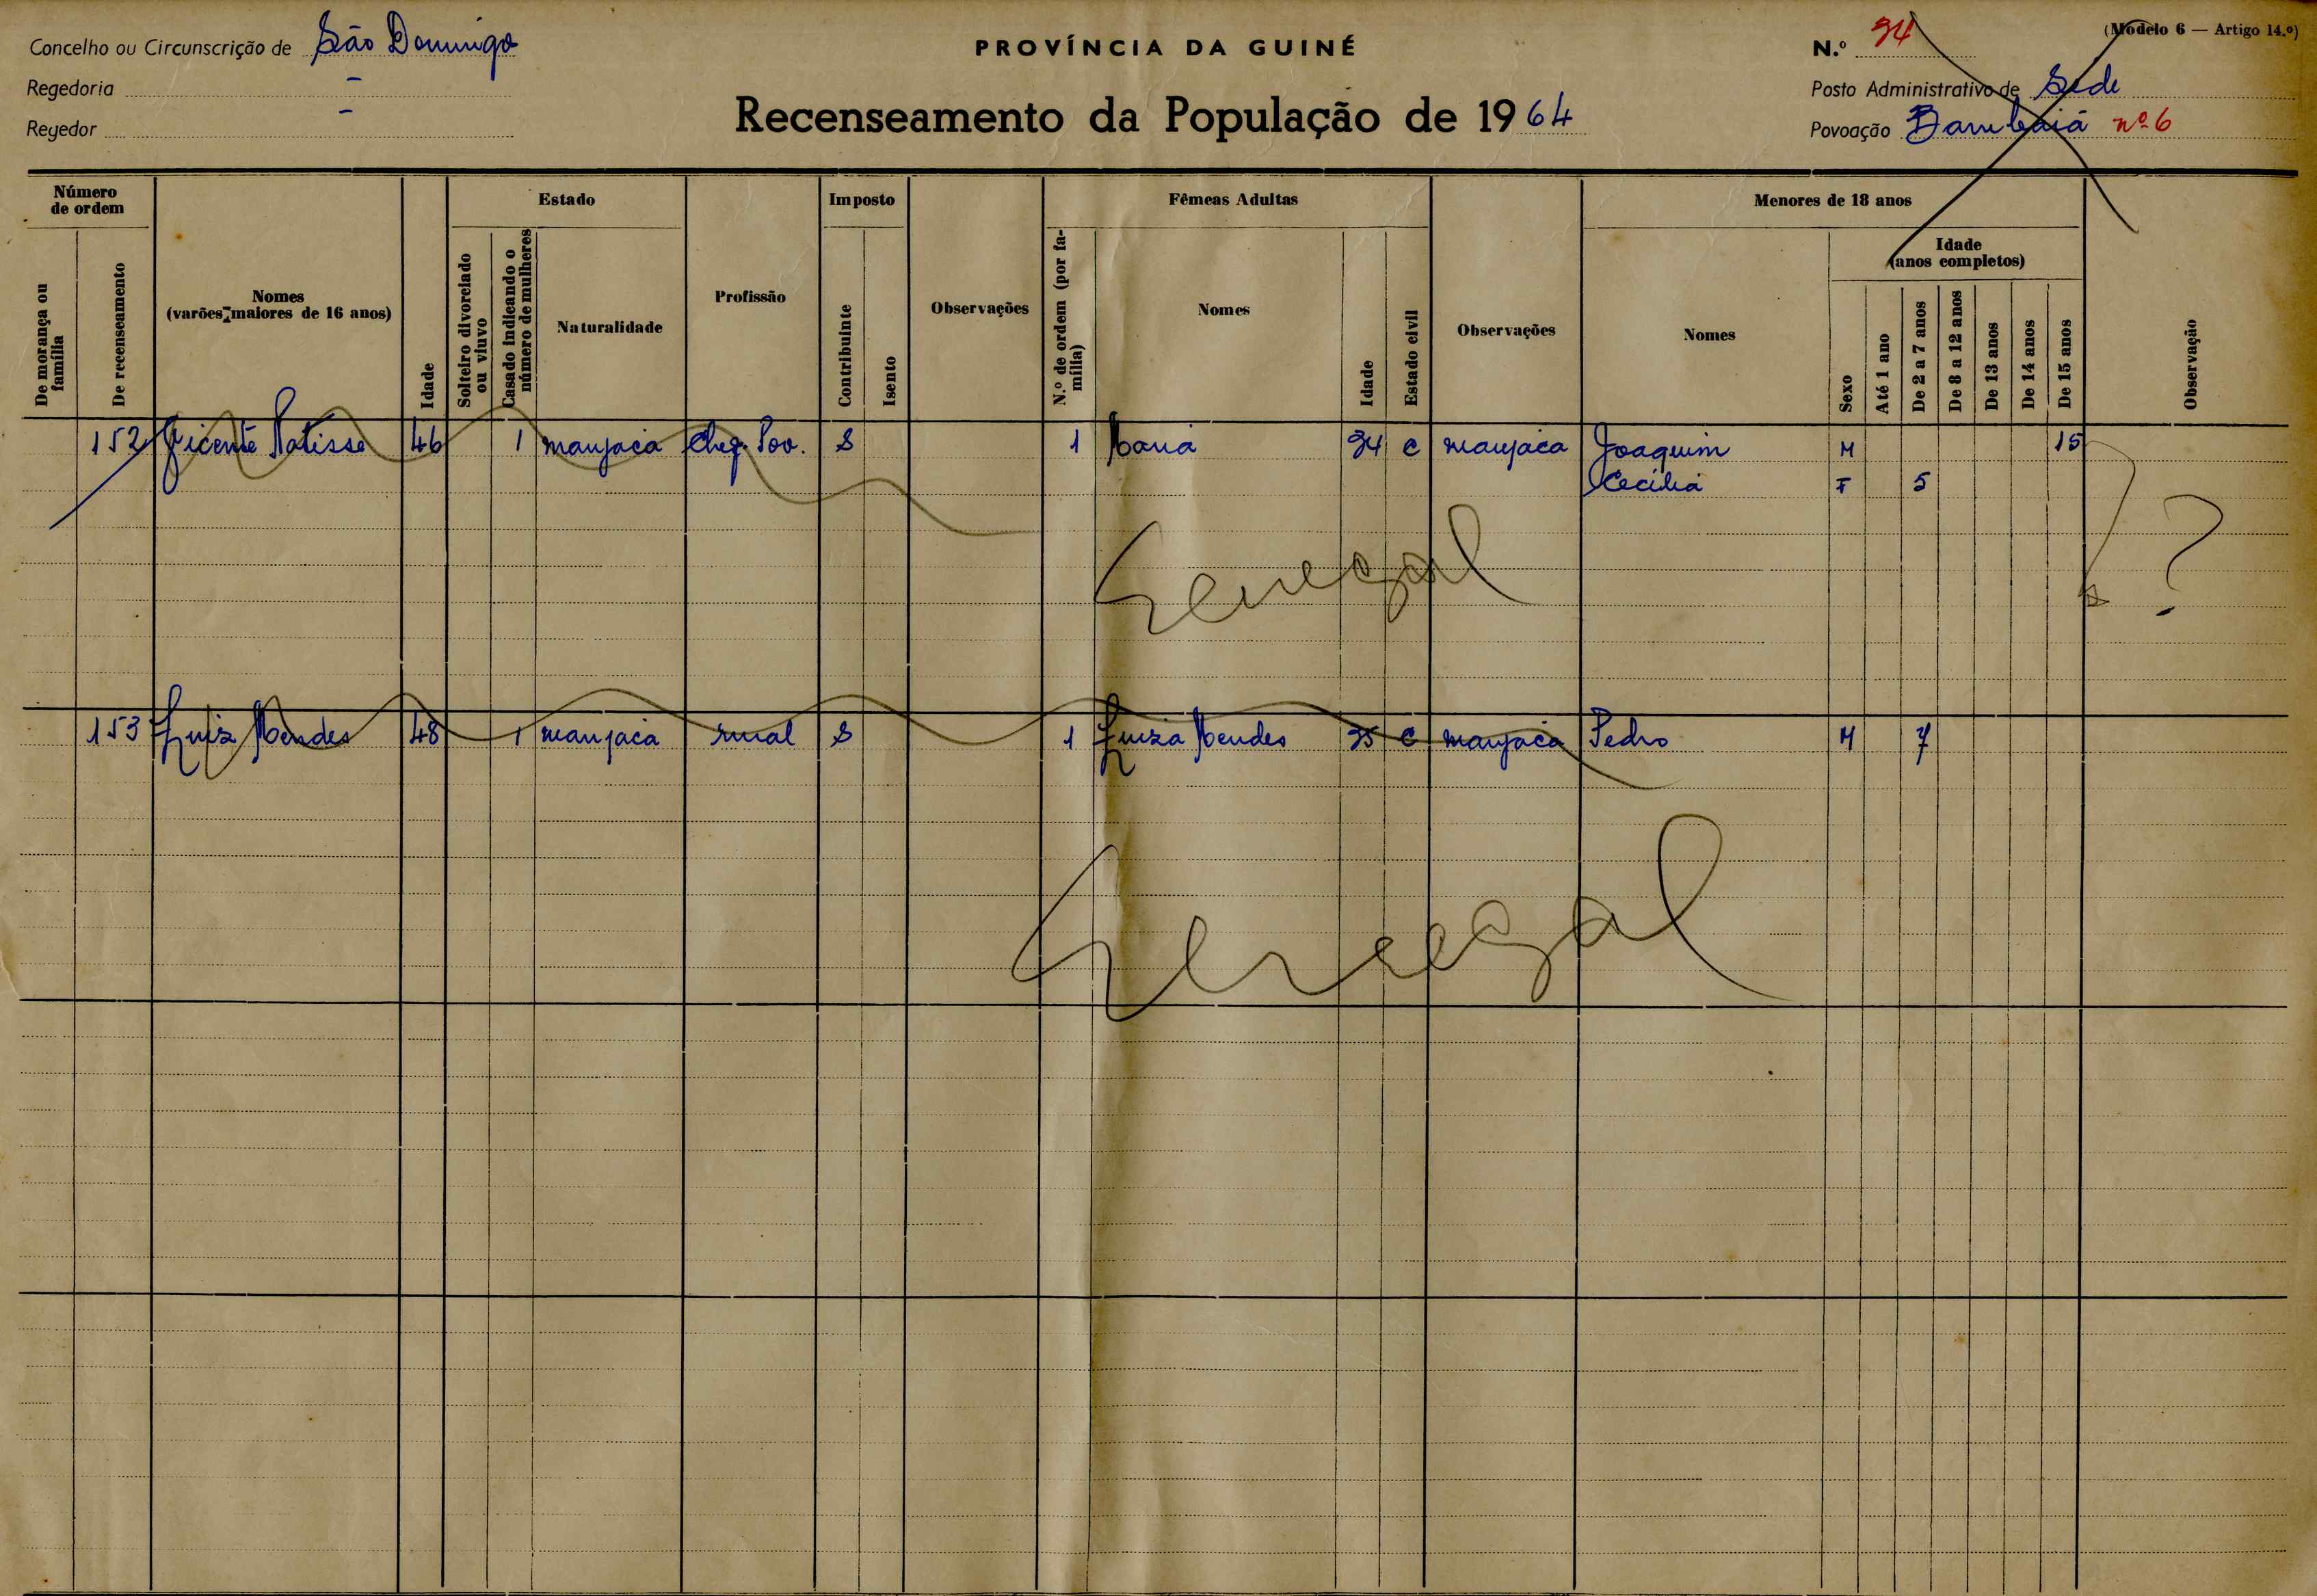 Concelho ou Circunscrição de São Domingo
Regedoria -
Regedor -
PROVÍNCIA DA GUINÉ
Recenseamento da População de 1964
(Modelo 6 — Artigo 14.º)
N.º 34
Posto Administrativo de Sede
Povoação Bambaiá nº 6
Número de ordem
De morança ou família
De recenseamento
Nomes
(varões maiores de 16 anos)
Idade
Estado
Solteiro divorciado ou viuvo
Casado indicando o número de mulheres
Naturalidade
Profissão
Imposto
Contribuinte
Isento
Observações
Fêmeas Adultas
N.º de ordem (por família)
Nomes
Idade
Estado civil
Observações
Menores de 18 anos
Nomes
Sexo
Idade
(anos completos)
Até 1 ano
De 2 a 7 anos
De 8 a 12 anos
De 13 anos
De 14 anos
De 15 anos
Observação
152 Vicente Natisse 46 1 manjaca Chef. Pov. S 1 Maria 34 C manjaca Joaquim M 15
Cecilia F 5
Senegal
?
153 Luiz Mendes 48 1 manjaca rural S 1 Luiza Mendes 35 C manjaca Pedro M 7
Senegal